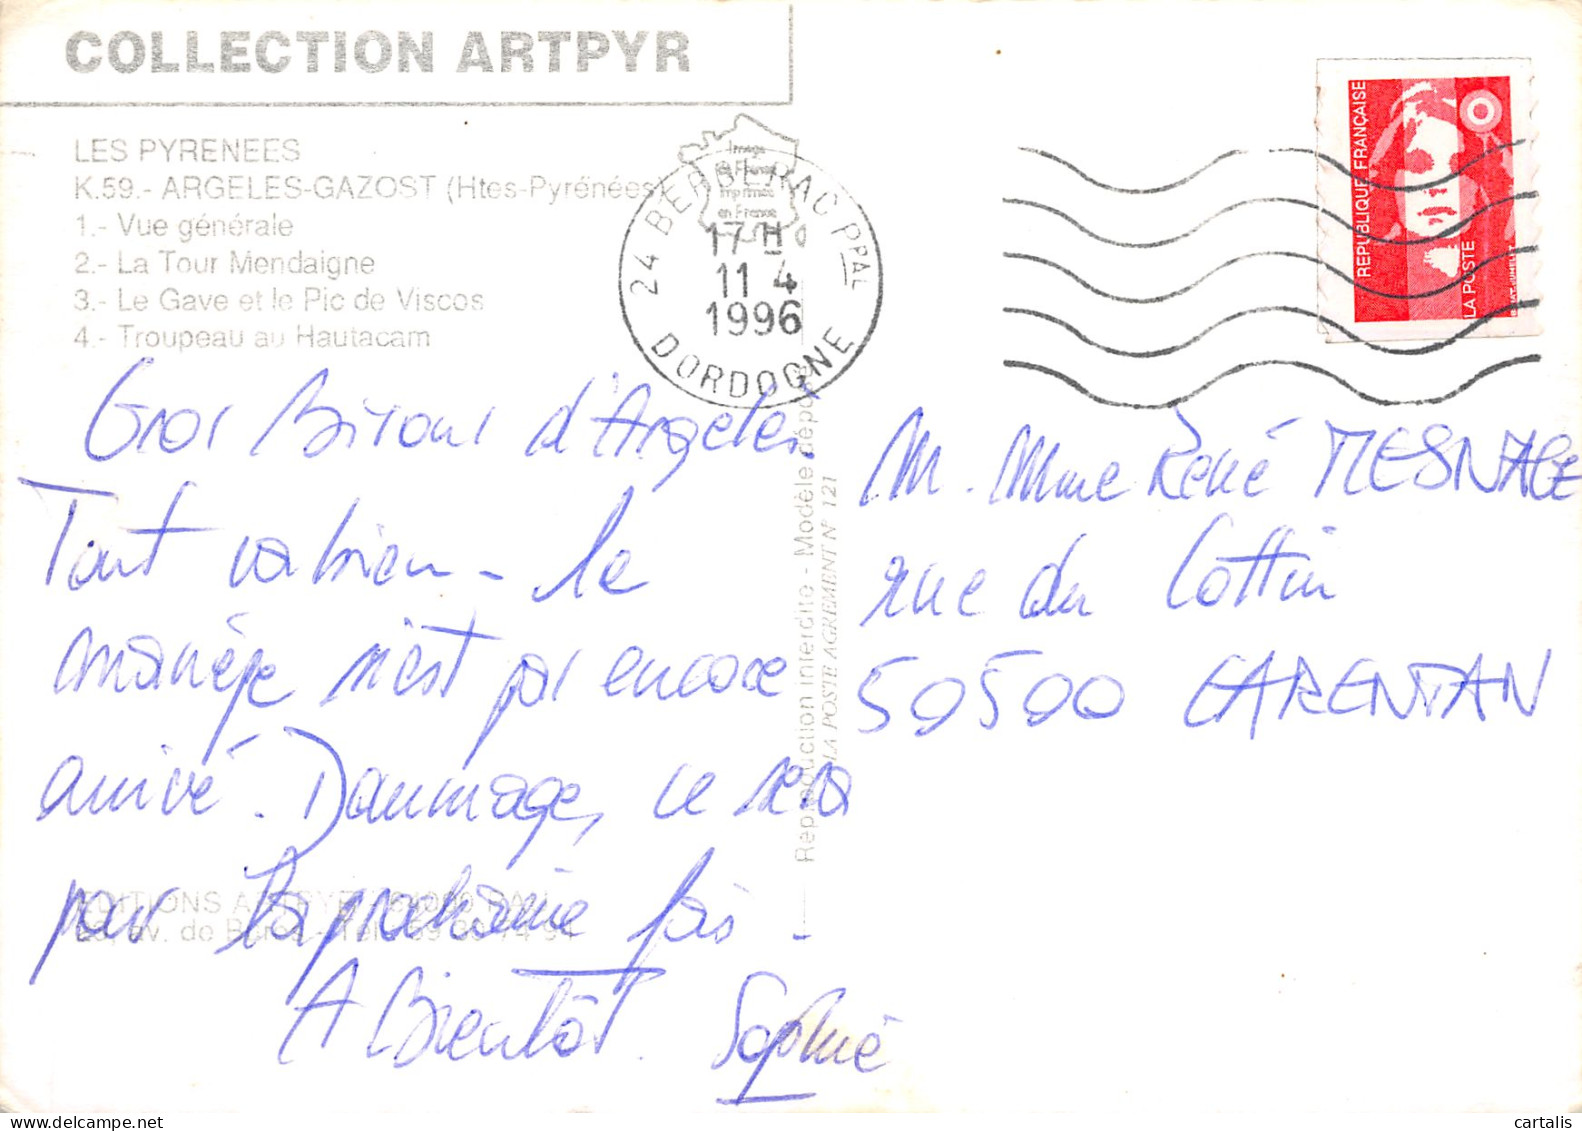 COLLECTION ARTPYR
LES PYRENEES
K.59.- ARGELES-GAZOST (Htes-Pyrénées)
1.- Vue générale
2.- La Tour Mendaigne
3.- Le Gave et le Pic de Viscos
4.- Troupeau au Hautacam
Image
de France
imprimée
en France
24 BERGERAC PPAL
17 H
11 4
1996
DORDOGNE
REPUBLIQUE FRANÇAISE
LA POSTE
Gros Bisous d'Argelès.
Tout va bien - le
manège n'est pas encore
arrivé. Dommage, ce sera
pour la prochaine fois -
A Bientôt. Sophie
EDITIONS ARTPYR - 64000 PAU
Reproduction interdite - Modèle déposé
LA POSTE AGREMENT N° 121
M. Mme René MESNAGE
rue du Cottin
50500 CARENTAN
cartalis